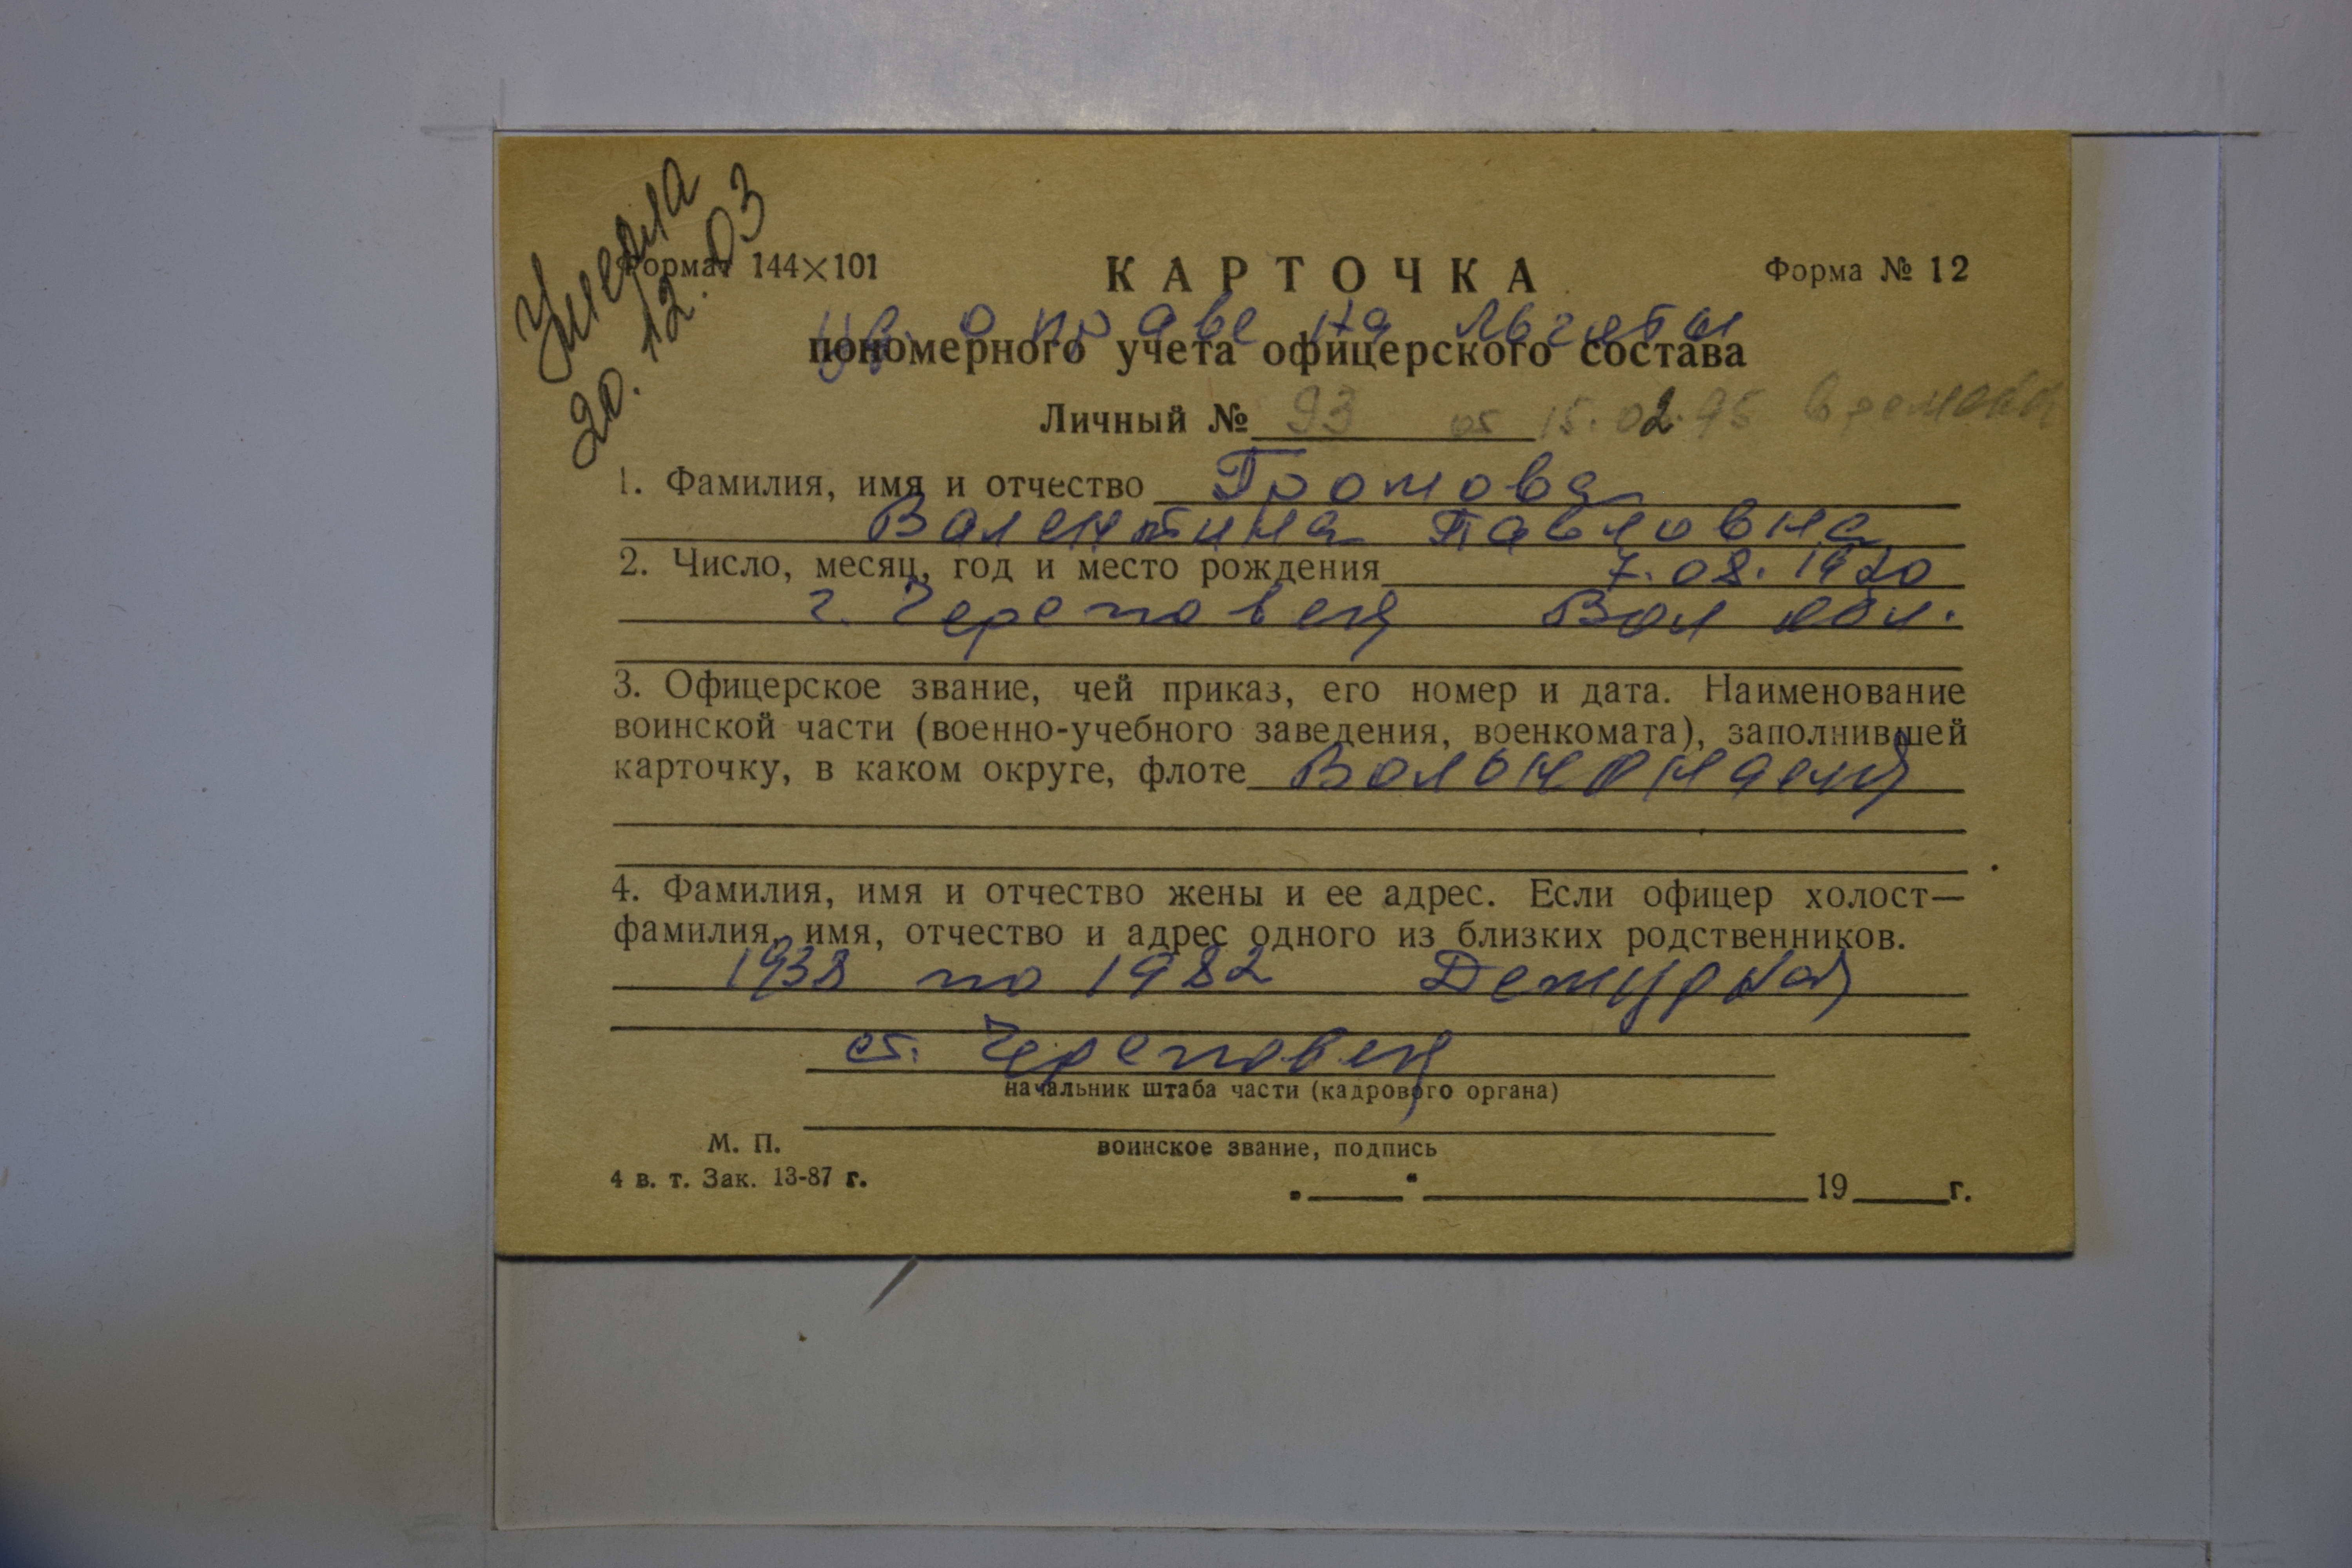 Умерла
20.12.03
Формат 144×101
КАРТОЧКА
Форма № 12
уд. о праве на льготы
пономерного учета офицерского состава
Личный № 93 от 15.02.95
1. Фамилия, имя и отчество Громова
Валентина Павловна
2. Число, месяц, год и место рождения 7.08.1920
г. Череповец Вол обл.
3. Офицерское звание, чей приказ, его номер и дата. Наименование
воинской части (военно-учебного заведения, военкомата), заполнившей
карточку, в каком округе, флоте Вольнонаемн
4. Фамилия, имя и отчество жены и ее адрес. Если офицер холост—
фамилия, имя, отчество и адрес одного из близких родственников.
1938 по 1982 Дежурная
ст. Череповец
начальник штаба части (кадрового органа)
М. П.
воинское звание, подпись
4 в. т. Зак. 13-87 г.
19 г.